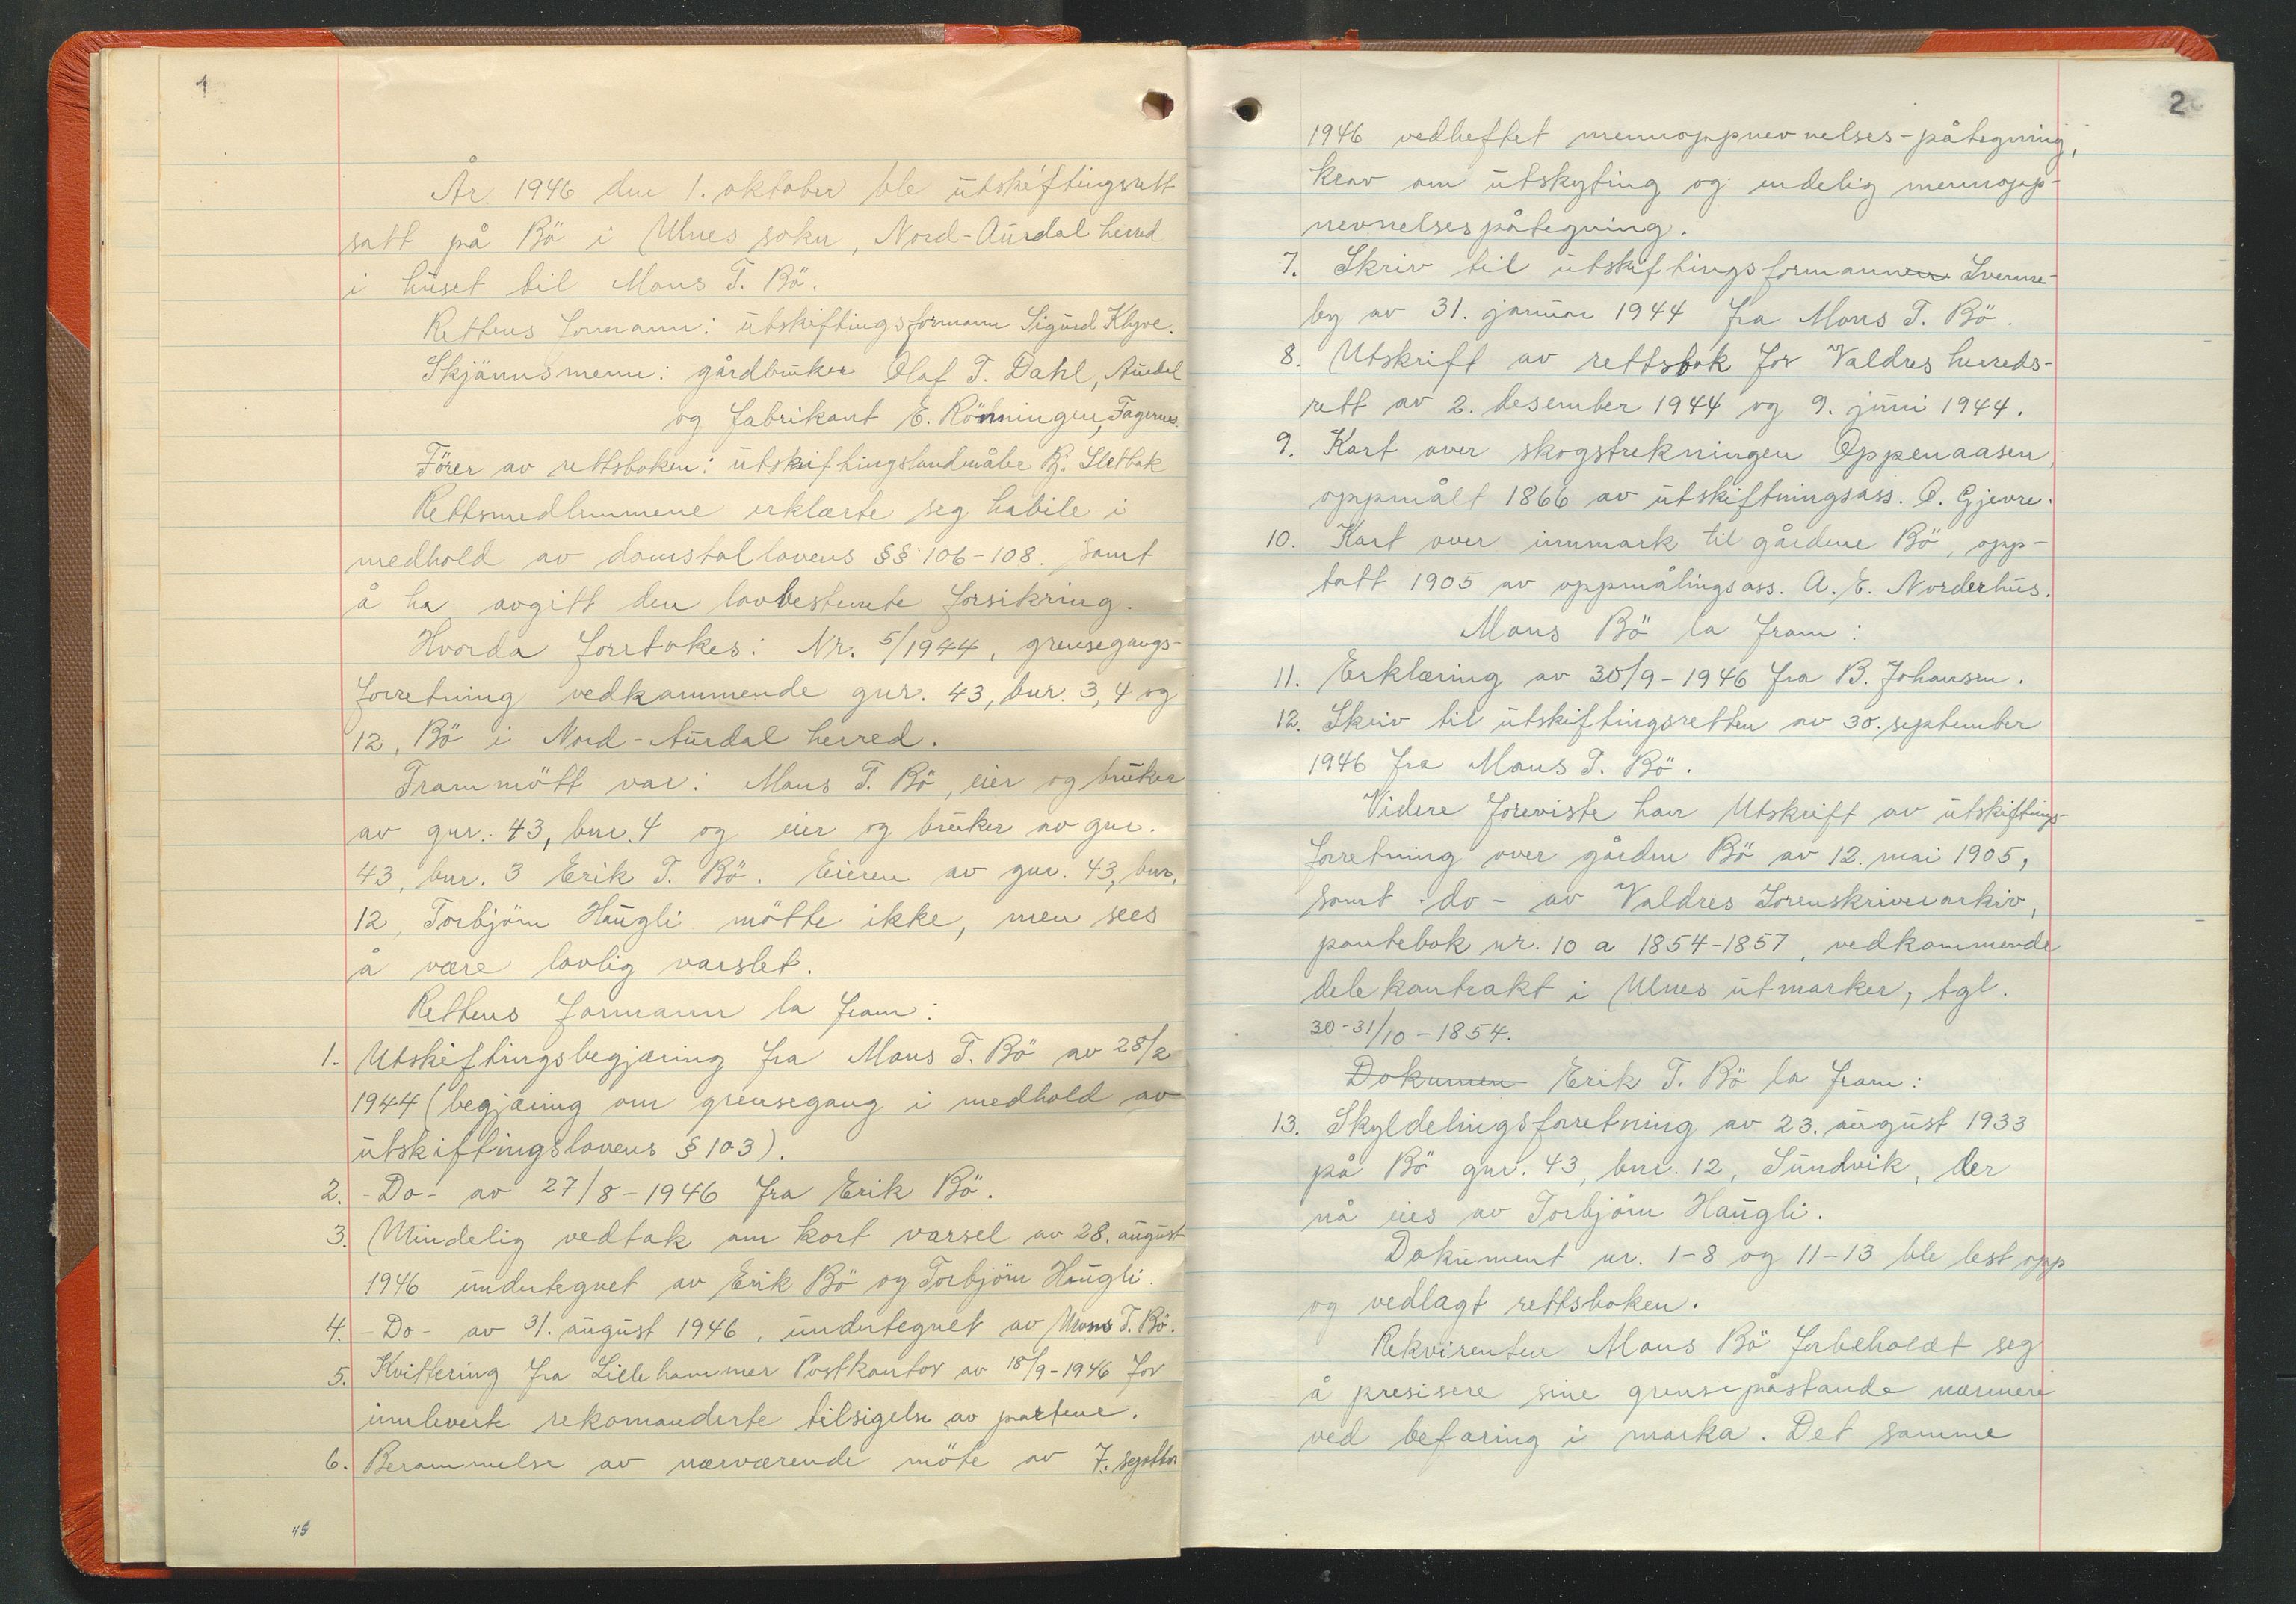 1
År 1946 den 1. oktober ble utskiftingsrett
satt på Bö i Ulnes sokn, Nord-Aurdal herred
i huset til Mons T. Bö.
Rettens formann: utskiftingsformann Sigurd Klyve.
Skjönnsmenn: gårdbruker Olaf T. Dahl, Aurdal
og fabrikant E. Rönningen, Fagernes.
Förer av rettsboken: utskiftingslandmåler Bj. Sletbak
Rettsmedlemmene erklærte seg habile i
medhold av domstollovens §§ 106-108. samt
å ha avgitt den lovbestemte forsikring.
Hvorda foretokes: Nr. 5/1944, grensegangs-
forretning vedkommende gnr. 43, bnr. 3, 4 og
12, Bö i Nord-Aurdal herred.
Frammött var: Mons T. Bö, eier og bruker
av gnr. 43, bnr. 4 og eier og bruker av gnr.
43, bnr. 3 Erik T. Bö. Eieren av gnr. 43, bnr.
12, Torbjörn Haugli mötte ikke, men sees
å være lovlig varslet.
Rettens formann la fram:
1. Utskiftingsbegjæring fra Mons T. Bö av 28/2
1944 (begjæring om grensegang i medhold av
utskiftingslovens § 103).
2. -Do- av 27/8-1946 fra Erik Bö.
3. Mindelig vedtak om kort varsel av 28. august
1946 undertegnet av Erik Bö og Torbjörn Haugli.
4. -Do- av 31. august 1946, undertegnet av Mons T. Bö.
5. Kvittering fra Lillehammer Postkontor av 18/9-1946 for
innleverte rekomanderte tilsigelse av partene.
6. Berammelse av nærværende möte av 7. septbr.
45
2
1946 vedheftet mennoppnevnelses-påtegning,
krav om utskyting og endelig mennopp-
nevnelsespåtegning.
7. Skriv til utskiftingsformannen Svenne-
by av 31. januar 1944 fra Mons T. Bö.
8. Utskrift av rettsbok for Valdres herreds-
rett av 2. desember 1944 og 9. juni 1944.
9. Kart over skogstrekningen Oppenaasen,
oppmålt 1866 av utskiftningsass. O. Gjevre.
10. Kart over innmark til gårdene Bö, opp-
tatt 1905 av oppmålingsass. A. E. Norderhus.
Mons Bö la fram:
11. Erklæring av 30/9-1946 fra B. Johansen.
12. Skriv til utskiftingsretten av 30. september
1946 fra Mons T. Bö.
Videre foreviste han Utskrift av utskiftings-
forretning over gården Bö av 12. mai 1905,
samt -do- av Valdres Sorenskriverarkiv,
pantebok nr. 10 a 1854-1857, vedkommende
delekontrakt i Ulnes utmarker, tgl.
30-31/10-1854.
Dokumen Erik T. Bö la fram:
13. Skyldelingsforretning av 23. august 1933
på Bö gnr. 43, bnr. 12, Sundvik, der
nå eies av Torbjörn Haugli.
Dokument nr. 1-8 og 11-13 ble lest opp
og vedlagt rettsboken.
Rekvirenten Mons Bö forbeholdt seg
å presisere sine grensepåstande nærmere
ved befaring i marka. Det samme